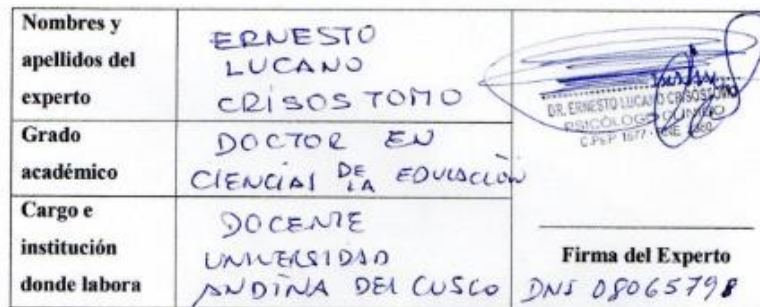 Nombres y
apellidos del
experto
ERNESTO
LUCANO
CRISOSTOMO
DR. ERNESTO LUCANO CRISOSTOMO
PSICÓLOGO CLINICO
C.PSP 1577 -
Grado
académico
DOCTOR EN
CIENCIAS DE LA EDUCACIÓN
Cargo e
institución
donde labora
DOCENTE
UNIVERSIDAD
ANDINA DEL CUSCO
Firma del Experto
DNI 08065798